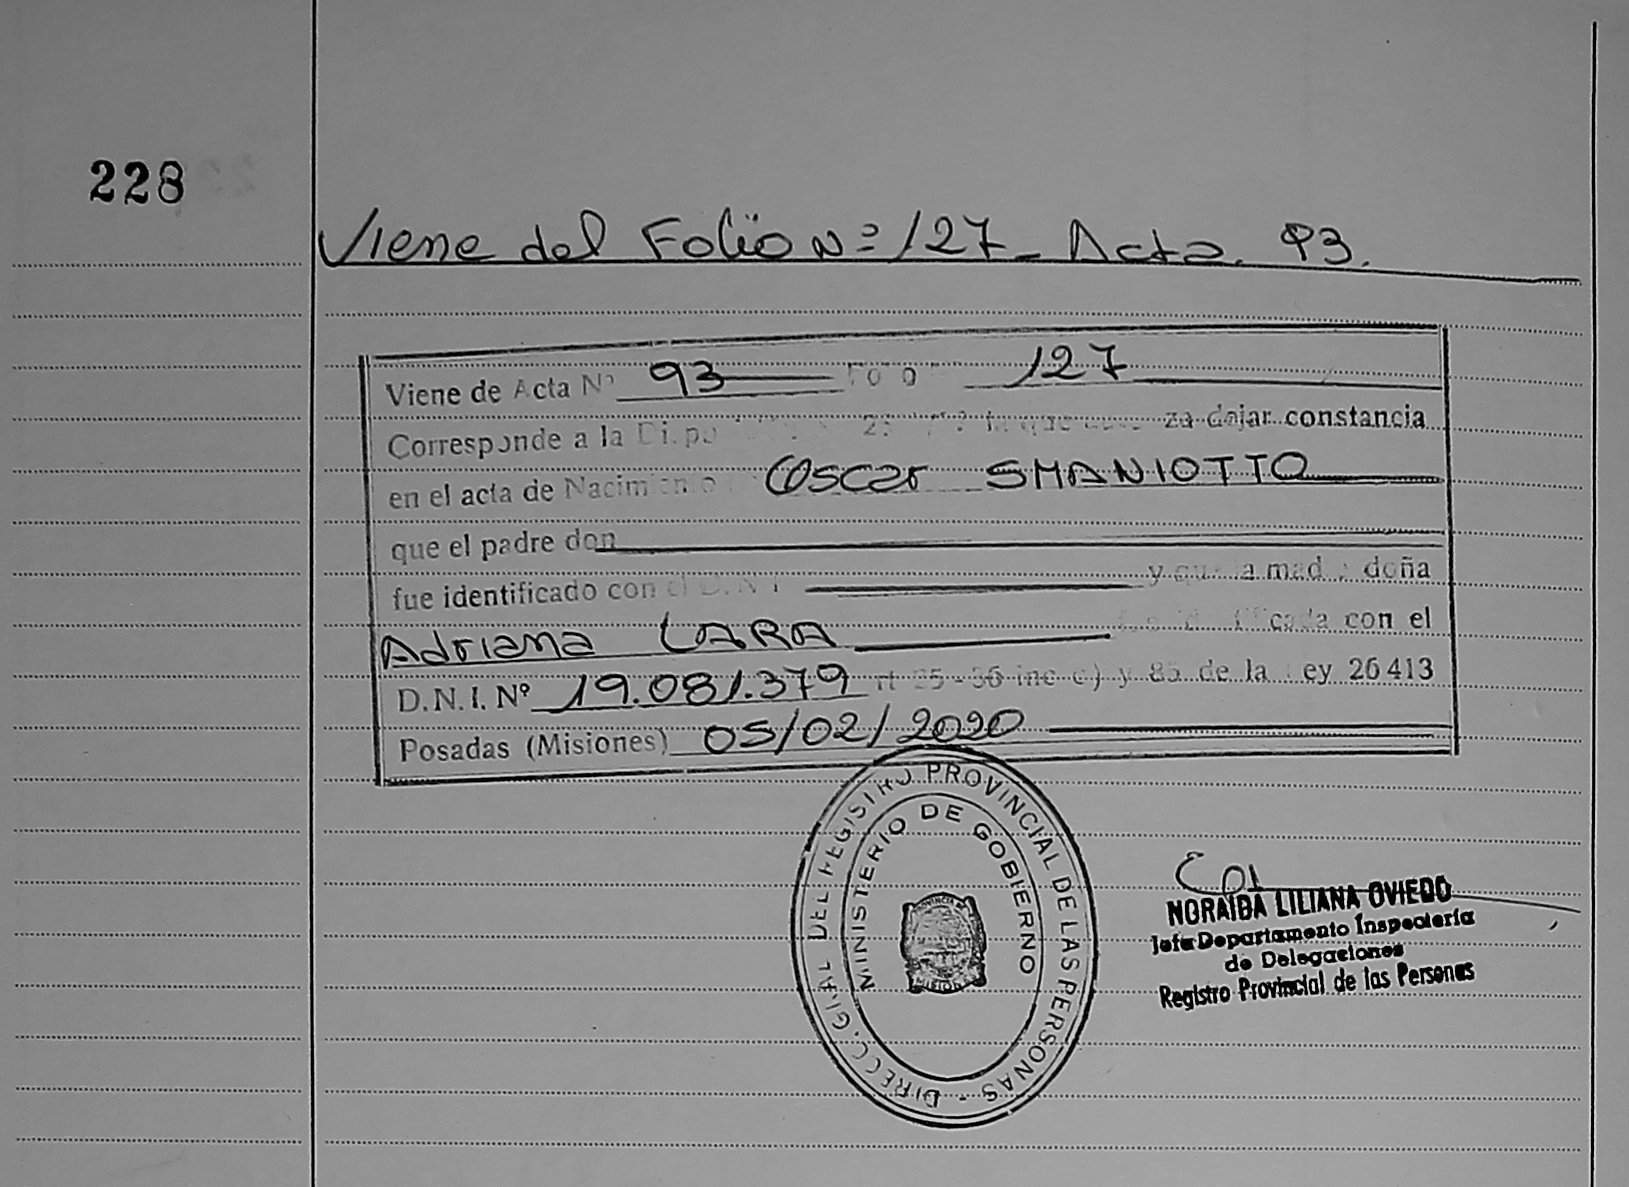 228
Viene del Folio Nº 127 - Acta. 93.
Viene de Acta Nº 93 Folio 127
Corresponde a la za dejar constancia
en el acta de Nacimiento Oscar SMANIOTTO
que el padre don
fue identificado con el D.N.I y que la madre doña
Adriana LARA cada con el
D.N.I. Nº 19.081.379 rt 25-36 inc c) y 85 de la Ley 26 413
Posadas (Misiones) 05/02/2020
DIRECC. GRAL DEL REGISTRO PROVINCIAL DE LAS PERSONAS -
MINISTERIO DE GOBIERNO
PROVINCIA DE
MISIONES
NORAIBA LILIANA OVIEDO
Jefa Departamento Inspectoría
de Delegaciones
Registro Provincial de las Personas